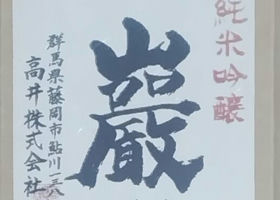 純米吟醸
巖
群馬県藤岡市鮎川一三八
高井株式会社